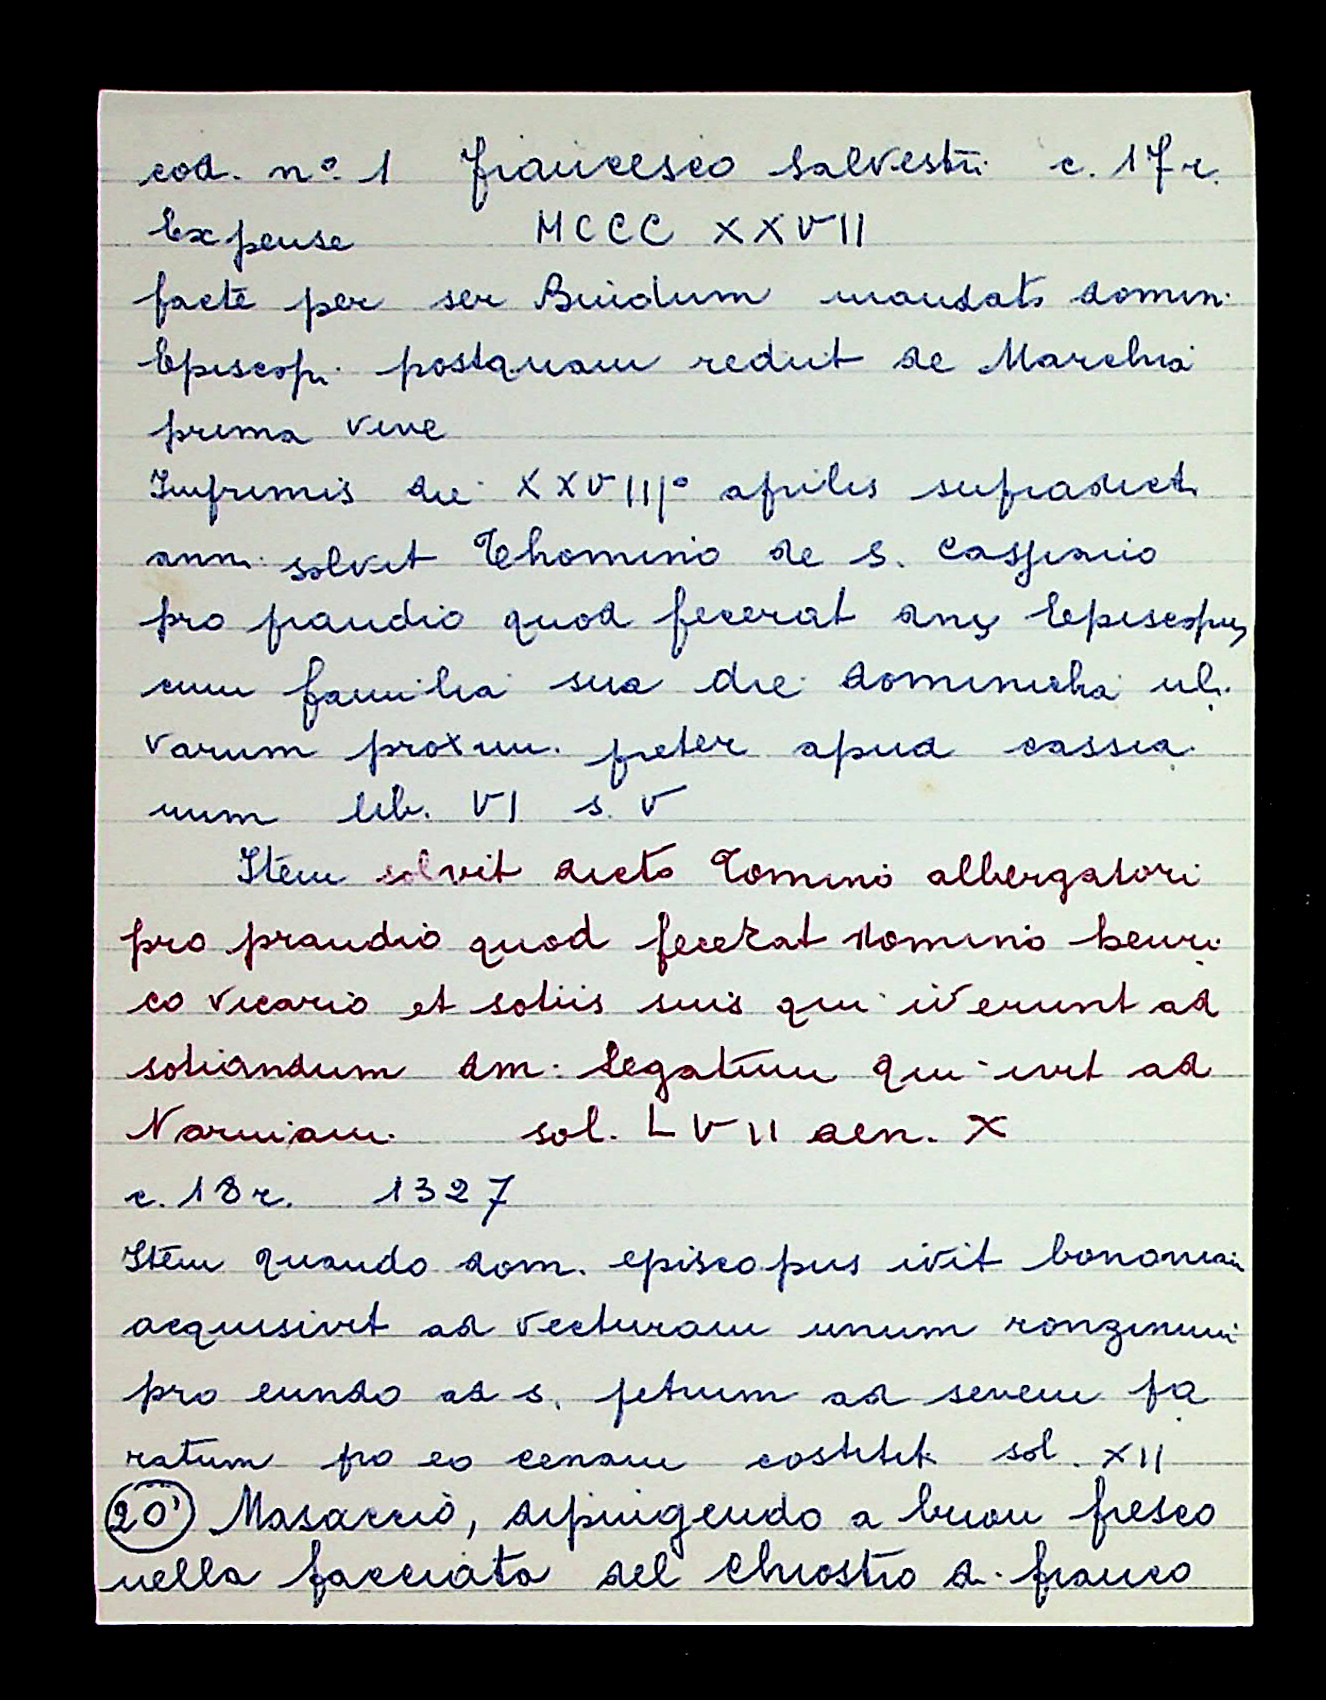 cod. n° 1 Francesco Salvestri c. 17 r.
Expense MCCC XXVII
facte per ser Buidum mandato domin.
Episcopi postquam rediit de Marchia
prima vice
Imprimis die XXVIII° aprilis supradicti
anni solvit Thomino de S. Cassiano
pro prandio quod fecerat dnς Episcopus
cum familia sua die dominicha uli
varum proxim. preter apud cassia
num lib. VI s. V
Item solvit dicto Tomino albergatori
pro prandio quod fecerat domino henri
co vicario et sotiis suis qui iverunt ad
sotiandum dm. Legatum qui ivit ad
Narniam. sol. LVII den. X
c. 18 r. 1327
Item quando dom. episcopus ivit bononiam
acquisivit ad vecturam unum ronzinum
pro eundo ad s. petrum ad sevem pa
ratum pro eo cenam costitit sol. XII
20) Masaccio, dipingendo a buon fresco
nella facciata del Chiostro di franco